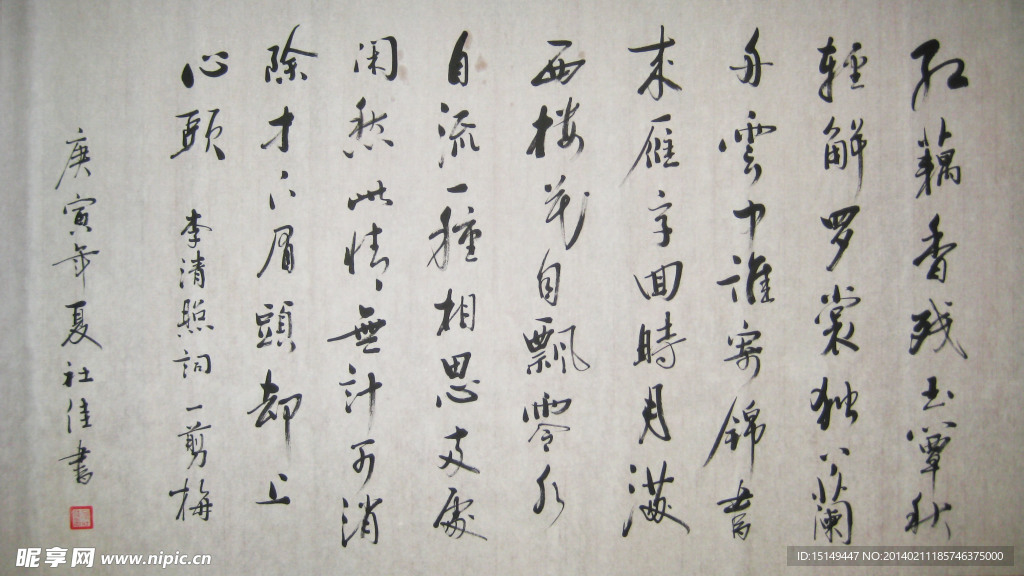 红藕香残玉簟秋
輕解罗裳独上蘭
舟雲中誰寄錦書
来雁字回時月满
西楼花自飄零水
自流一種相思两處
闲愁此情無計可消
除才下眉頭却上
心頭 李清照詞一剪梅
庚寅年夏社佳書
昵享网 www.nipic.cn
ID:15149447 NO:20140211185746375000